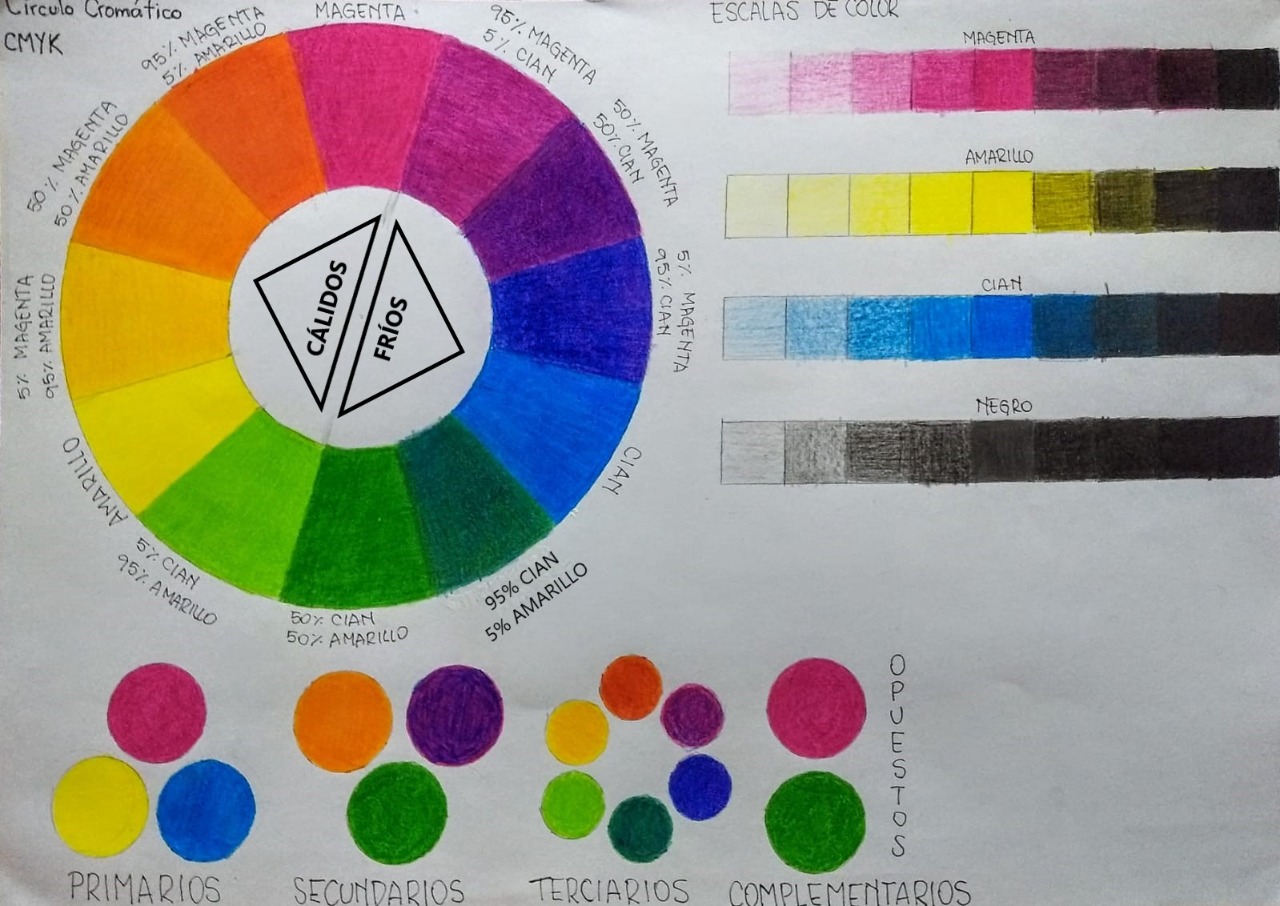 Círculo Cromático
CMYK
MAGENTA
95% MAGENTA
5% CIAN
50% MAGENTA
50% CIAN
5% MAGENTA
95% CIAN
CIAN
95% CIAN
5% AMARILLO
50% CIAN
50% AMARILLO
5% CIAN
95% AMARILLO
AMARILLO
5% MAGENTA
95% AMARILLO
50% MAGENTA
50% AMARILLO
95% MAGENTA
5% AMARILLO
CÁLIDOS
FRÍOS
ESCALAS DE COLOR
MAGENTA
AMARILLO
CIAN
NEGRO
PRIMARIOS
SECUNDARIOS
TERCIARIOS
COMPLEMENTARIOS
OPUESTOS